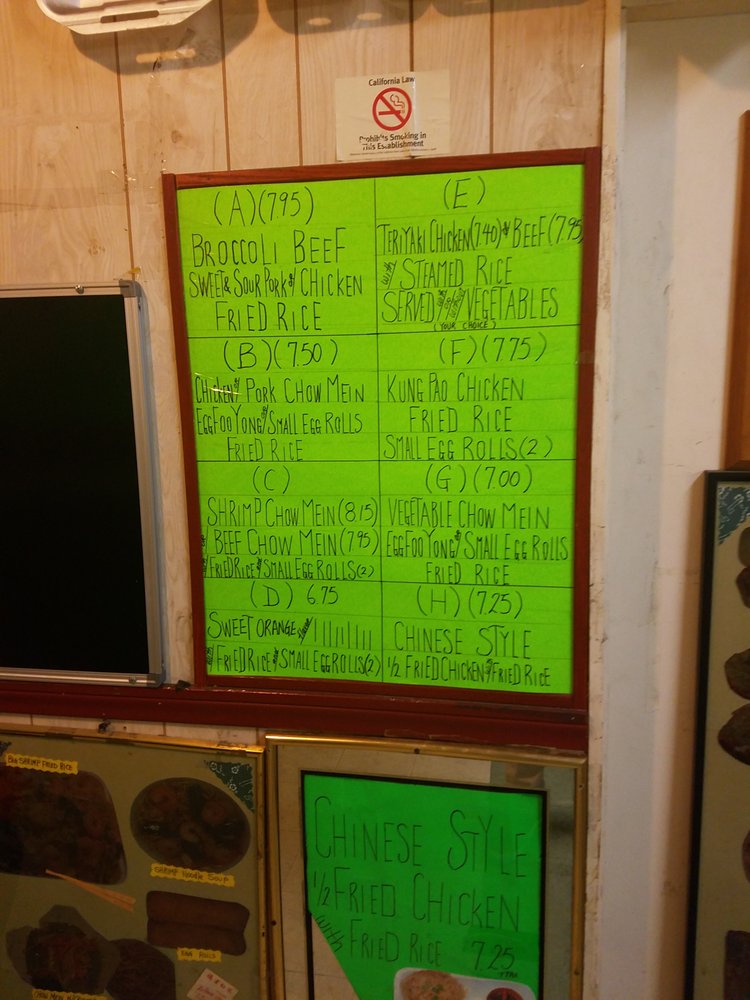 California Law
Prohibits Smoking in
This Establishment
(A)(7.95)
BROCCOLI BEEF
SWEET & SOUR PORK or CHICKEN
FRIED RICE
(B)(7.50)
CHICKEN or PORK CHOW MEIN
EGG FOO YONG or SMALL EGG ROLLS
FRIED RICE
(C)
SHRIMP CHOW MEIN (8.15)
BEEF CHOW MEIN (7.95)
W/ FRIED RICE & SMALL EGG ROLLS (2)
(D) 6.75
SWEET ORANGE
W/ FRIED RICE & SMALL EGG ROLLS (2)
(E)
TERIYAKI CHICKEN (7.40) & BEEF (7.95)
with STEAMED RICE
SERVED VEGETABLES
(YOUR CHOICE)
(F)(7.75)
KUNG PAO CHICKEN
FRIED RICE
SMALL EGG ROLLS (2)
(G)(7.00)
VEGETABLE CHOW MEIN
EGG FOO YONG or SMALL EGG ROLLS
FRIED RICE
(H)(7.25)
CHINESE STYLE
1/2 FRIED CHICKEN & FRIED RICE
SHRIMP FRIED RICE
SHRIMP NOODLE SOUP
EGG ROLLS
CHINESE STYLE
1/2 FRIED CHICKEN
WITH FRIED RICE 7.25